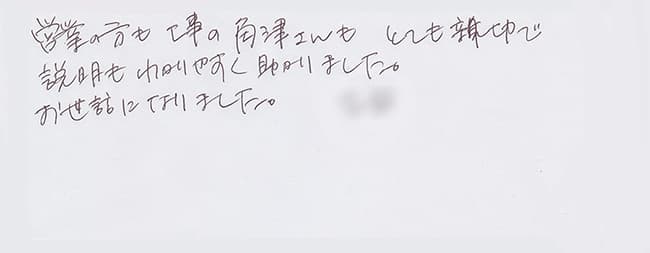 営業の方も工事の角津さんも とても親切で
説明もわかりやすく助かりました。
お世話になりました。